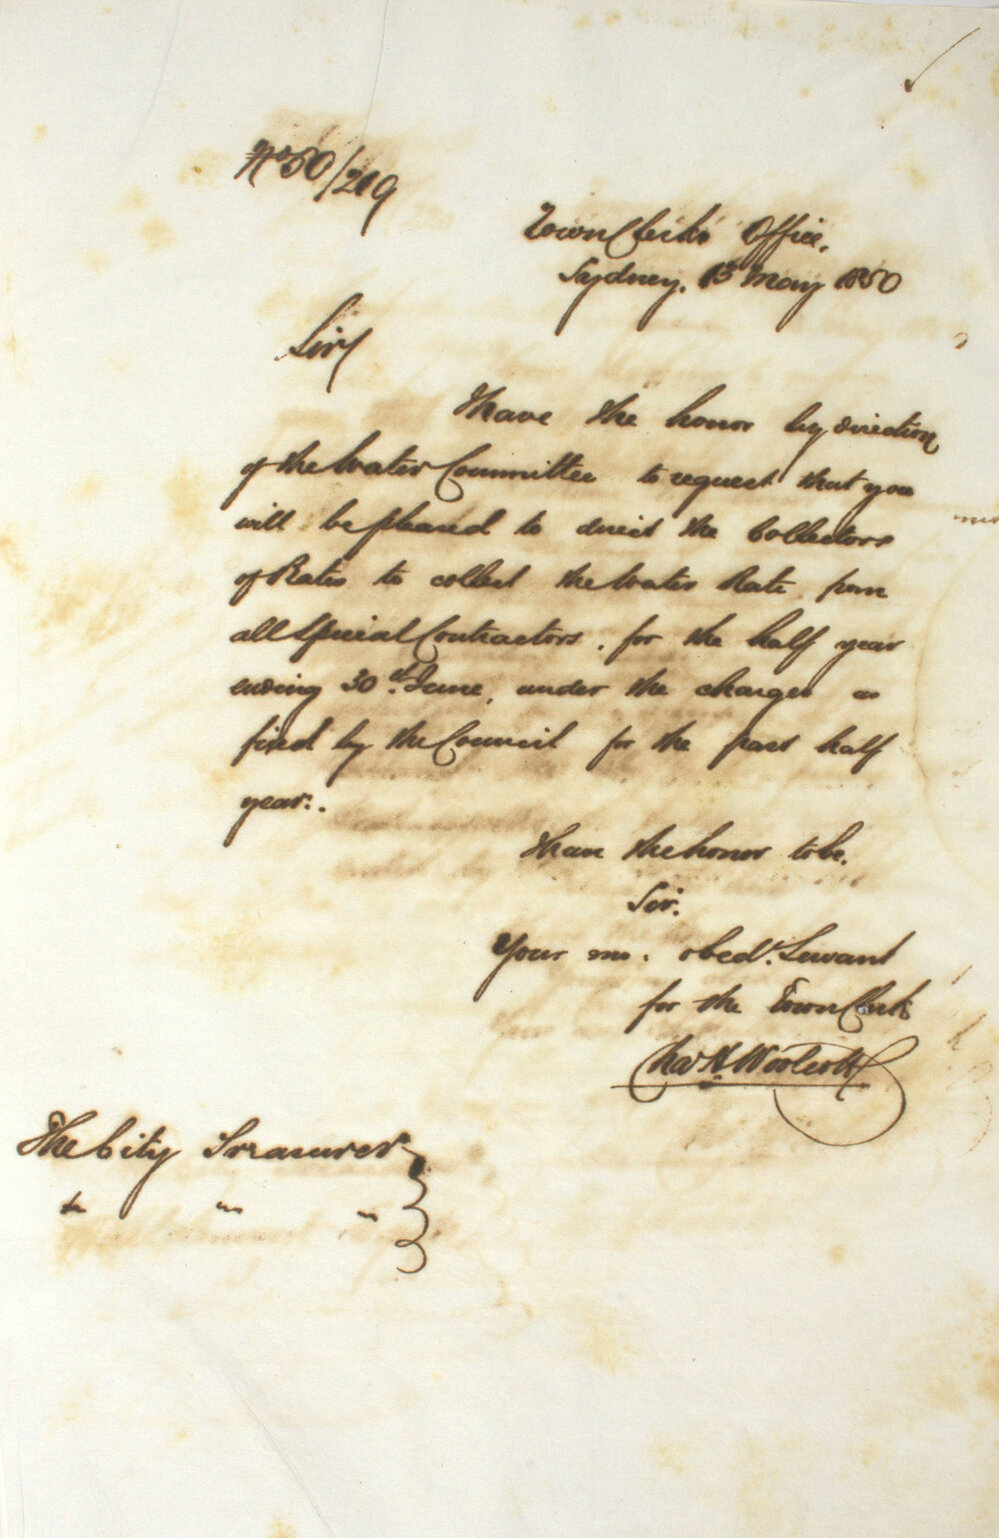 No 50/219
Town Clerk's Office,
Sydney, 13 May 1850
Sir,
I have the honor by direction
of the Water Committee to request that you
will be pleased to direct the Collectors
of Rates to collect the Water Rate from
all Special Contractors, for the half year
ending 30th June, under the charges as
fixed by the Council for the past half
year.
I have the honor to be,
Sir,
Your mo. obedt. Servant
for the Town Clerk
Chas H Woolcott
The City Treasurer
&c " "